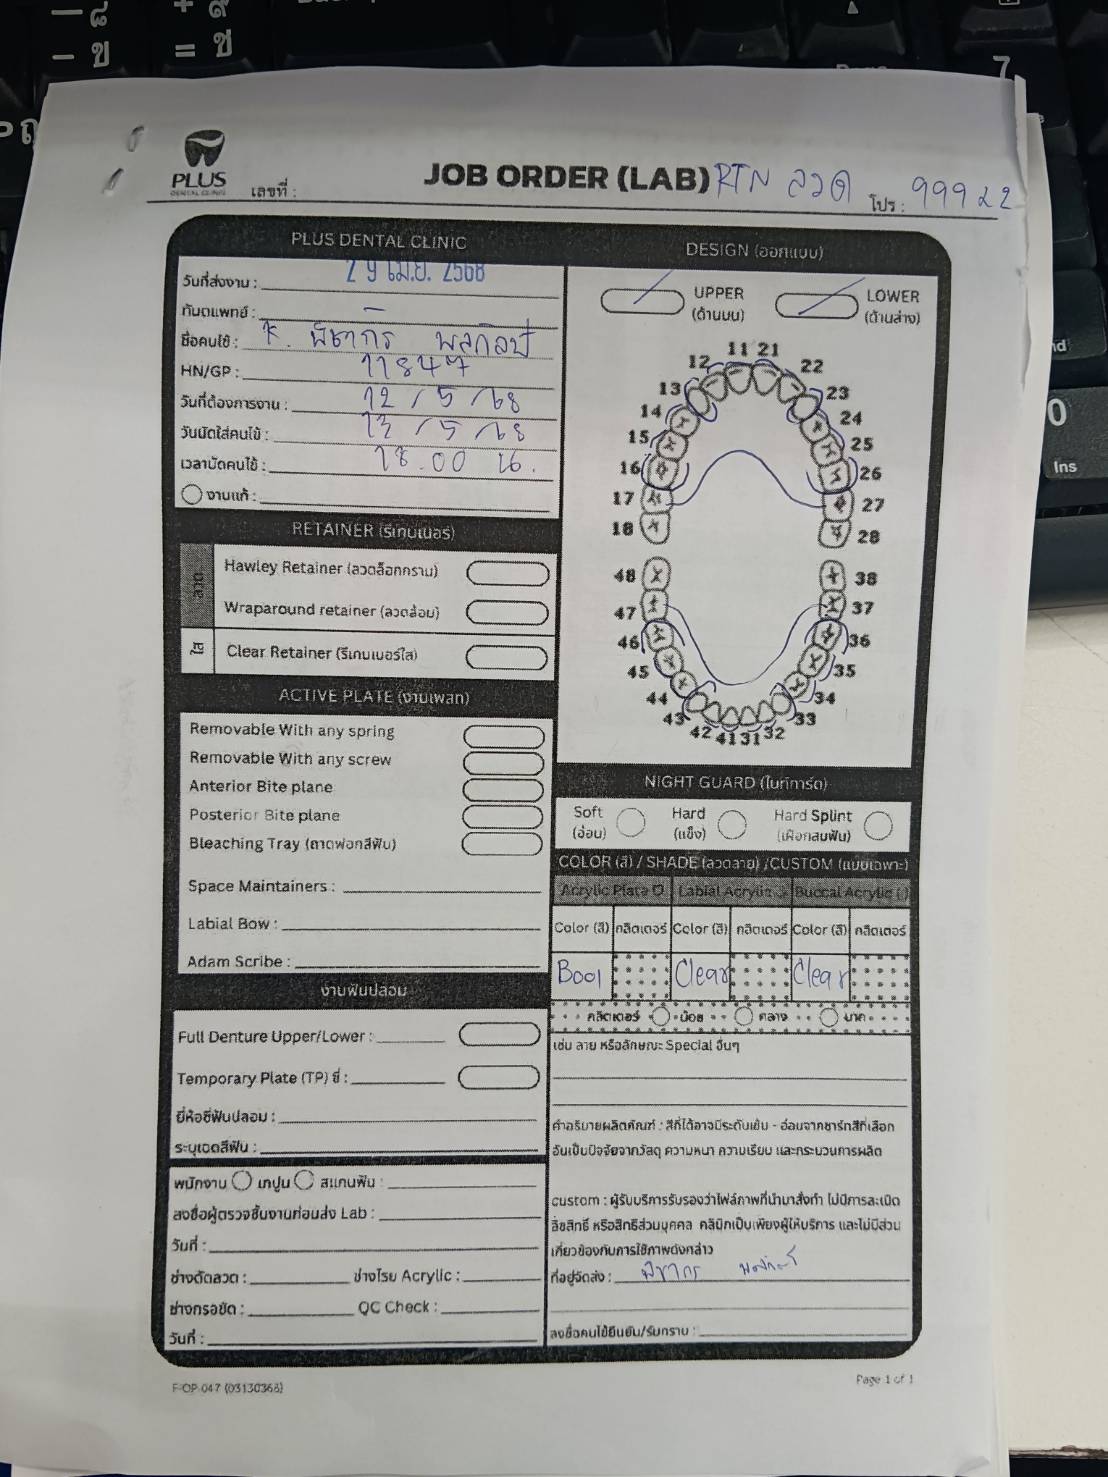 PLUS
DENTAL CLINIC
เลขที่ :
JOB ORDER (LAB) RTN ลวด
โปร : 999 x 2
PLUS DENTAL CLINIC
วันที่ส่งงาน : 29 เม.ย. 2568
ทันตแพทย์ : -
ชื่อคนไข้ : K.
HN/GP : 11847
วันที่ต้องการงาน : 12 / 5 / 68
วันนัดใส่คนไข้ : 13 / 5 / 68
เวลานัดคนไข้ : 18.00 น.
งานแก้ :
RETAINER (รีเทนเนอร์)
ลวด
Hawley Retainer (ลวดล็อกกราม)
Wraparound retainer (ลวดล้อม)
ใส
Clear Retainer (รีเทนเนอร์ใส)
ACTIVE PLATE (งานเพลท)
Removable With any spring
Removable With any screw
Anterior Bite plane
Posterior Bite plane
Bleaching Tray (ถาดฟอกสีฟัน)
Space Maintainers :
Labial Bow :
Adam Scribe :
งานฟันปลอม
Full Denture Upper/Lower :
Temporary Plate (TP) ซี่ :
ยี่ห้อซี่ฟันปลอม :
ระบุเฉดสีฟัน :
พนักงาน เทปูน สแกนฟัน :
ลงชื่อผู้ตรวจชิ้นงานก่อนส่ง Lab :
วันที่ :
ช่างดัดลวด : ช่างโรย Acrylic :
ช่างกรอขัด : QC Check :
วันที่ :
DESIGN (ออกแบบ)
UPPER
(ด้านบน)
LOWER
(ด้านล่าง)
11 21
12 22
13 23
14 24
15 25
16 26
17 27
18 28
48 38
47 37
46 36
45 35
44 34
43 33
42 41 31 32
NIGHT GUARD (ไนท์การ์ด)
Soft
(อ่อน)
Hard
(แข็ง)
Hard Splint
(เฝือกสบฟัน)
COLOR (สี) / SHADE (ลวดลาย) /CUSTOM (แบบเฉพาะ)
Acrylic Plate Labial Acrylic Buccal Acrylic
Color (สี) กลิตเตอร์ Color (สี) กลิตเตอร์ Color (สี) กลิตเตอร์
B001 Clear Clear
กลิตเตอร์ น้อย กลาง มาก
เช่น ลาย หรือลักษณะ Special อื่นๆ
คำอธิบายผลิตภัณฑ์ : สีที่ได้อาจมีระดับเข้ม - อ่อนจากชาร์ทสีที่เลือก
อันเป็นปัจจัยจากวัสดุ ความหนา ความเรียบ และกระบวนการผลิต
custom : ผู้รับบริการรับรองว่าไฟล์ภาพที่นำมาสั่งทำ ไม่มีการละเมิด
ลิขสิทธิ์ หรือสิทธิส่วนบุคคล คลินิกเป็นเพียงผู้ให้บริการ และไม่มีส่วน
เกี่ยวข้องกับการใช้ภาพดังกล่าว
ที่อยู่จัดส่ง :
ลงชื่อคนไข้ยืนยัน/รับทราบ :
F-OP-047 (03130368)
Page 1 of 1
Ins